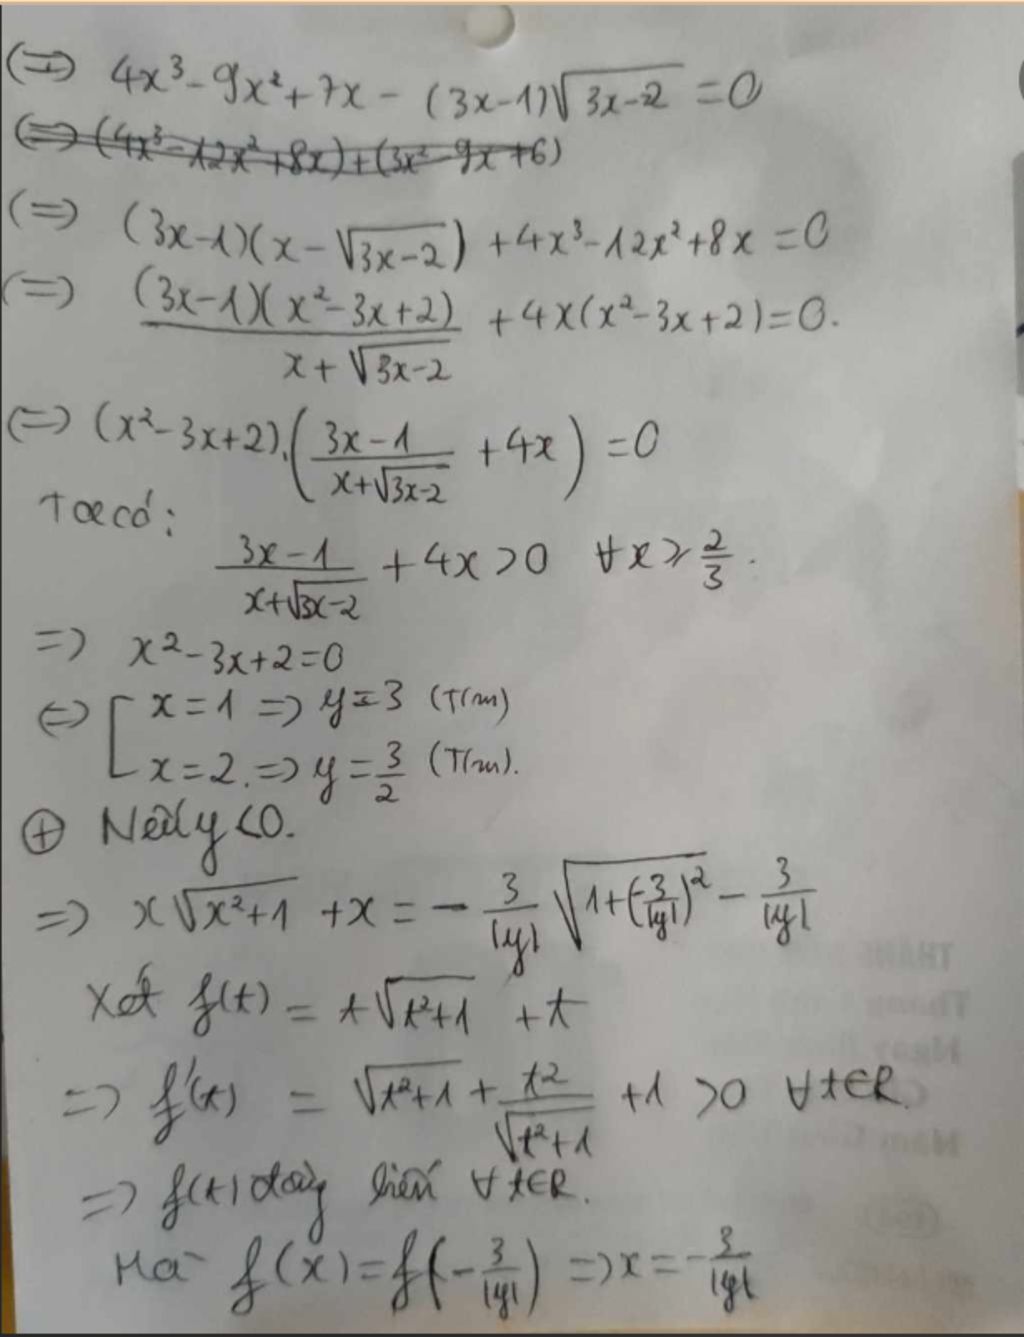 (=) 4x³ - 9x² + 7x - (3x-1)√(3x-2) = 0
(=) (4x³ - 12x² + 8x) + (3x² - 9x + 6)
(=) (3x-1)(x - √(3x-2)) + 4x³ - 12x² + 8x = 0
(=) (3x-1)(x² - 3x + 2)/(x + √(3x-2)) + 4x(x² - 3x + 2) = 0.
(=) (x² - 3x + 2).((3x-1)/(x + √(3x-2)) + 4x) = 0
Ta có:
(3x-1)/(x + √(3x-2)) + 4x > 0 ∀x ≥ 2/3.
=> x² - 3x + 2 = 0
<=> [ x = 1 => y = 3 (T/m)
x = 2. => y = 3/2 (T/m).
⊕ Nếu y < 0.
=> x√(x²+1) + x = - 3/|y| √(1 + (-3/|y|)²) - 3/|y|
Xét f(t) = t√(t²+1) + t
=> f'(t) = √(t²+1) + t²/√(t²+1) + 1 > 0 ∀t∈R.
=> f(t) đồng biến ∀t∈R.
Mà f(x) = f(-3/|y|) => x = -3/|y|